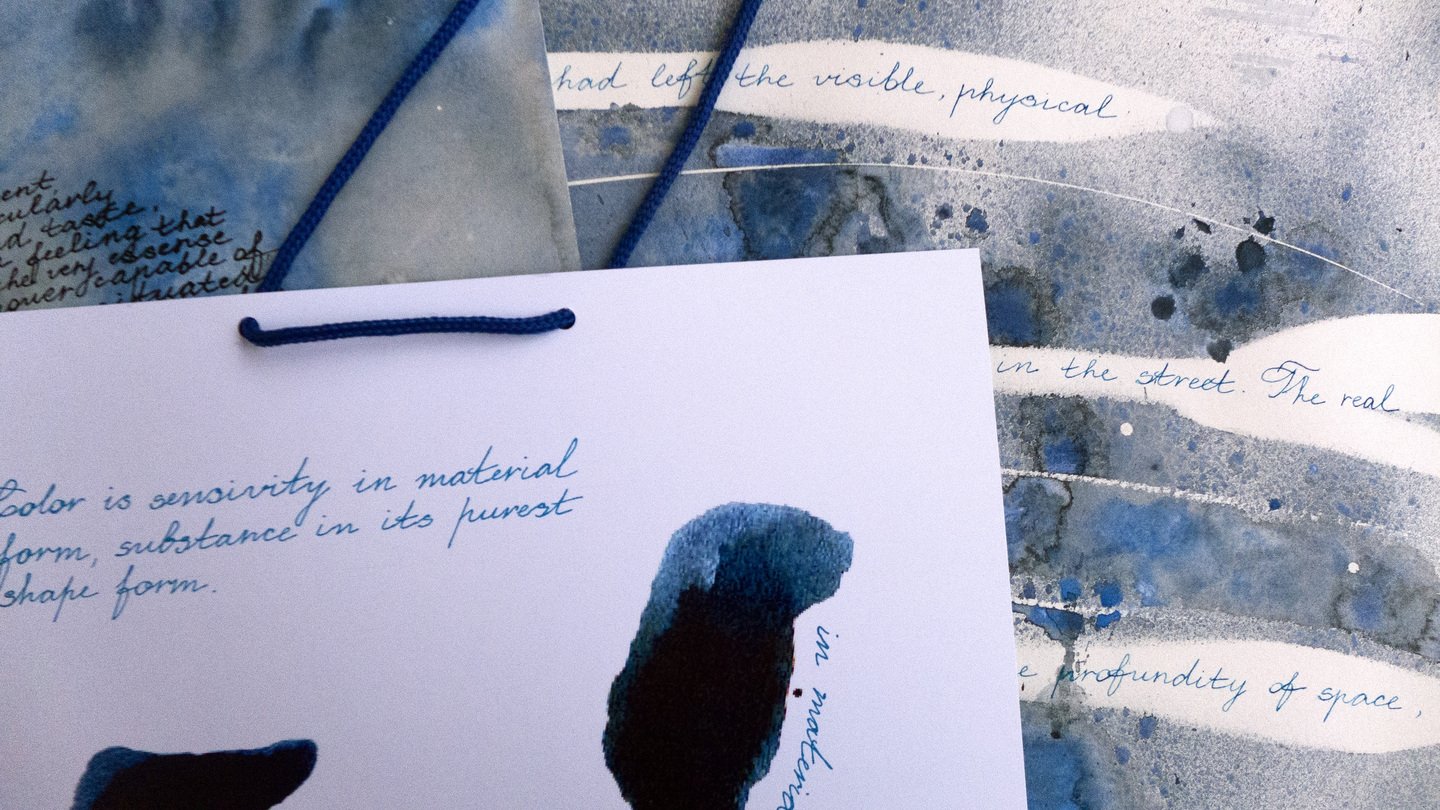 had left the visible, physical
ent,
cularly
d taste,
feeling that
the very essense
power capable of
situated
in the street. The real
Color is sensivity in material
form, substance in its purest
shape form.
in materia
e profundity of space,